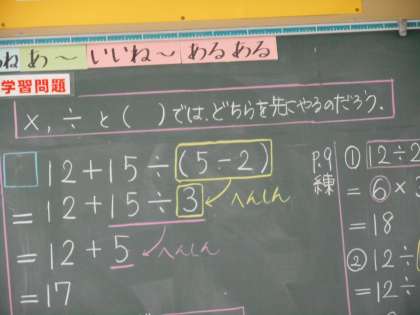 ね あ〜 いいね〜 あるある
学習問題
×,÷と( )では、どちらを先にやるのだろう。
12+15÷(5-2)
=12+15÷3 へんしん
=12+5 へんしん
=17
p.9
練
① 12÷2
=6×3
=18
② 12÷
=12÷